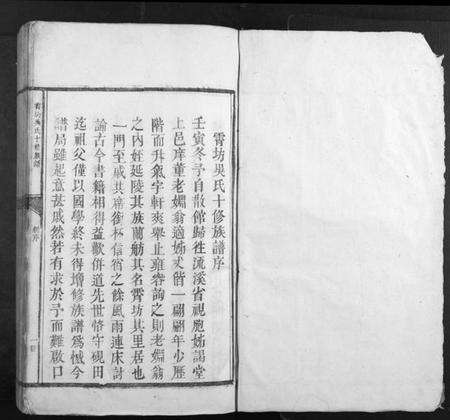 霄坊吳氏十修族譜序
壬寅冬予自散館歸徃流溪省視胞姊謁堂
上邑庠董老嫺翁適姊丈偕一翩翩年少歷
階而升氣宇軒爽舉止雍容詢之則老嫺翁
之內姪延陵其族蘭舫其名霄坊其里居也
一門至戚共席銜杯信宿之餘風雨連床討
論古今書籍相得益歡併道先世恪守硯田
迄祖父僅以國學終未得增修族譜爲憾今
譜局雖起意甚戚然若有求於予而難啟口
霄坊吳氏十修族譜
序
一